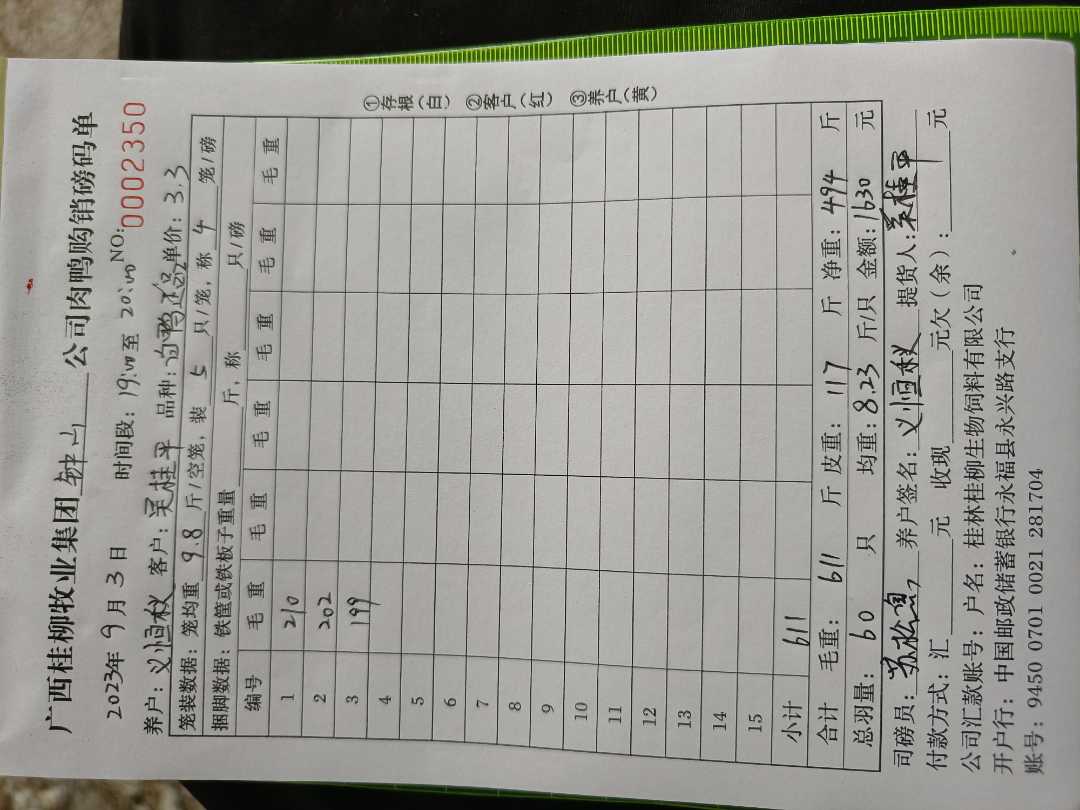 广西桂柳牧业集团钟山公司肉鸭购销磅码单
2023年9月3日 时间段：19:00至20:00 NO: 0002350
养户：义恒秋 客户：吴桂平 品种：白鸭 单价：3.3
笼装数据：笼均重9.8斤/空笼，装5只/笼，称4笼/磅
捆脚数据：铁筐或铁板子重量 斤，称 只/磅
编号 毛重 毛重 毛重 毛重 毛重 毛重
1 210
2 202
3 199
4
5
6
7
8
9
10
11
12
13
14
15
小计 611
合计 毛重：611斤 皮重：117斤 净重：494斤
总羽量：60只 均重：8.23斤/只 金额：1630元
司磅员： 养户签名：义恒秋 提货人：吴桂平
付款方式：汇 元 收现 元欠（余）： 元
公司汇款账号：户名：桂林桂柳生物饲料有限公司
开户行：中国邮政储蓄银行永福县永兴路支行
账号：9450 0701 0021 281704
①存根（白） ②客户（红） ③养户（黄）